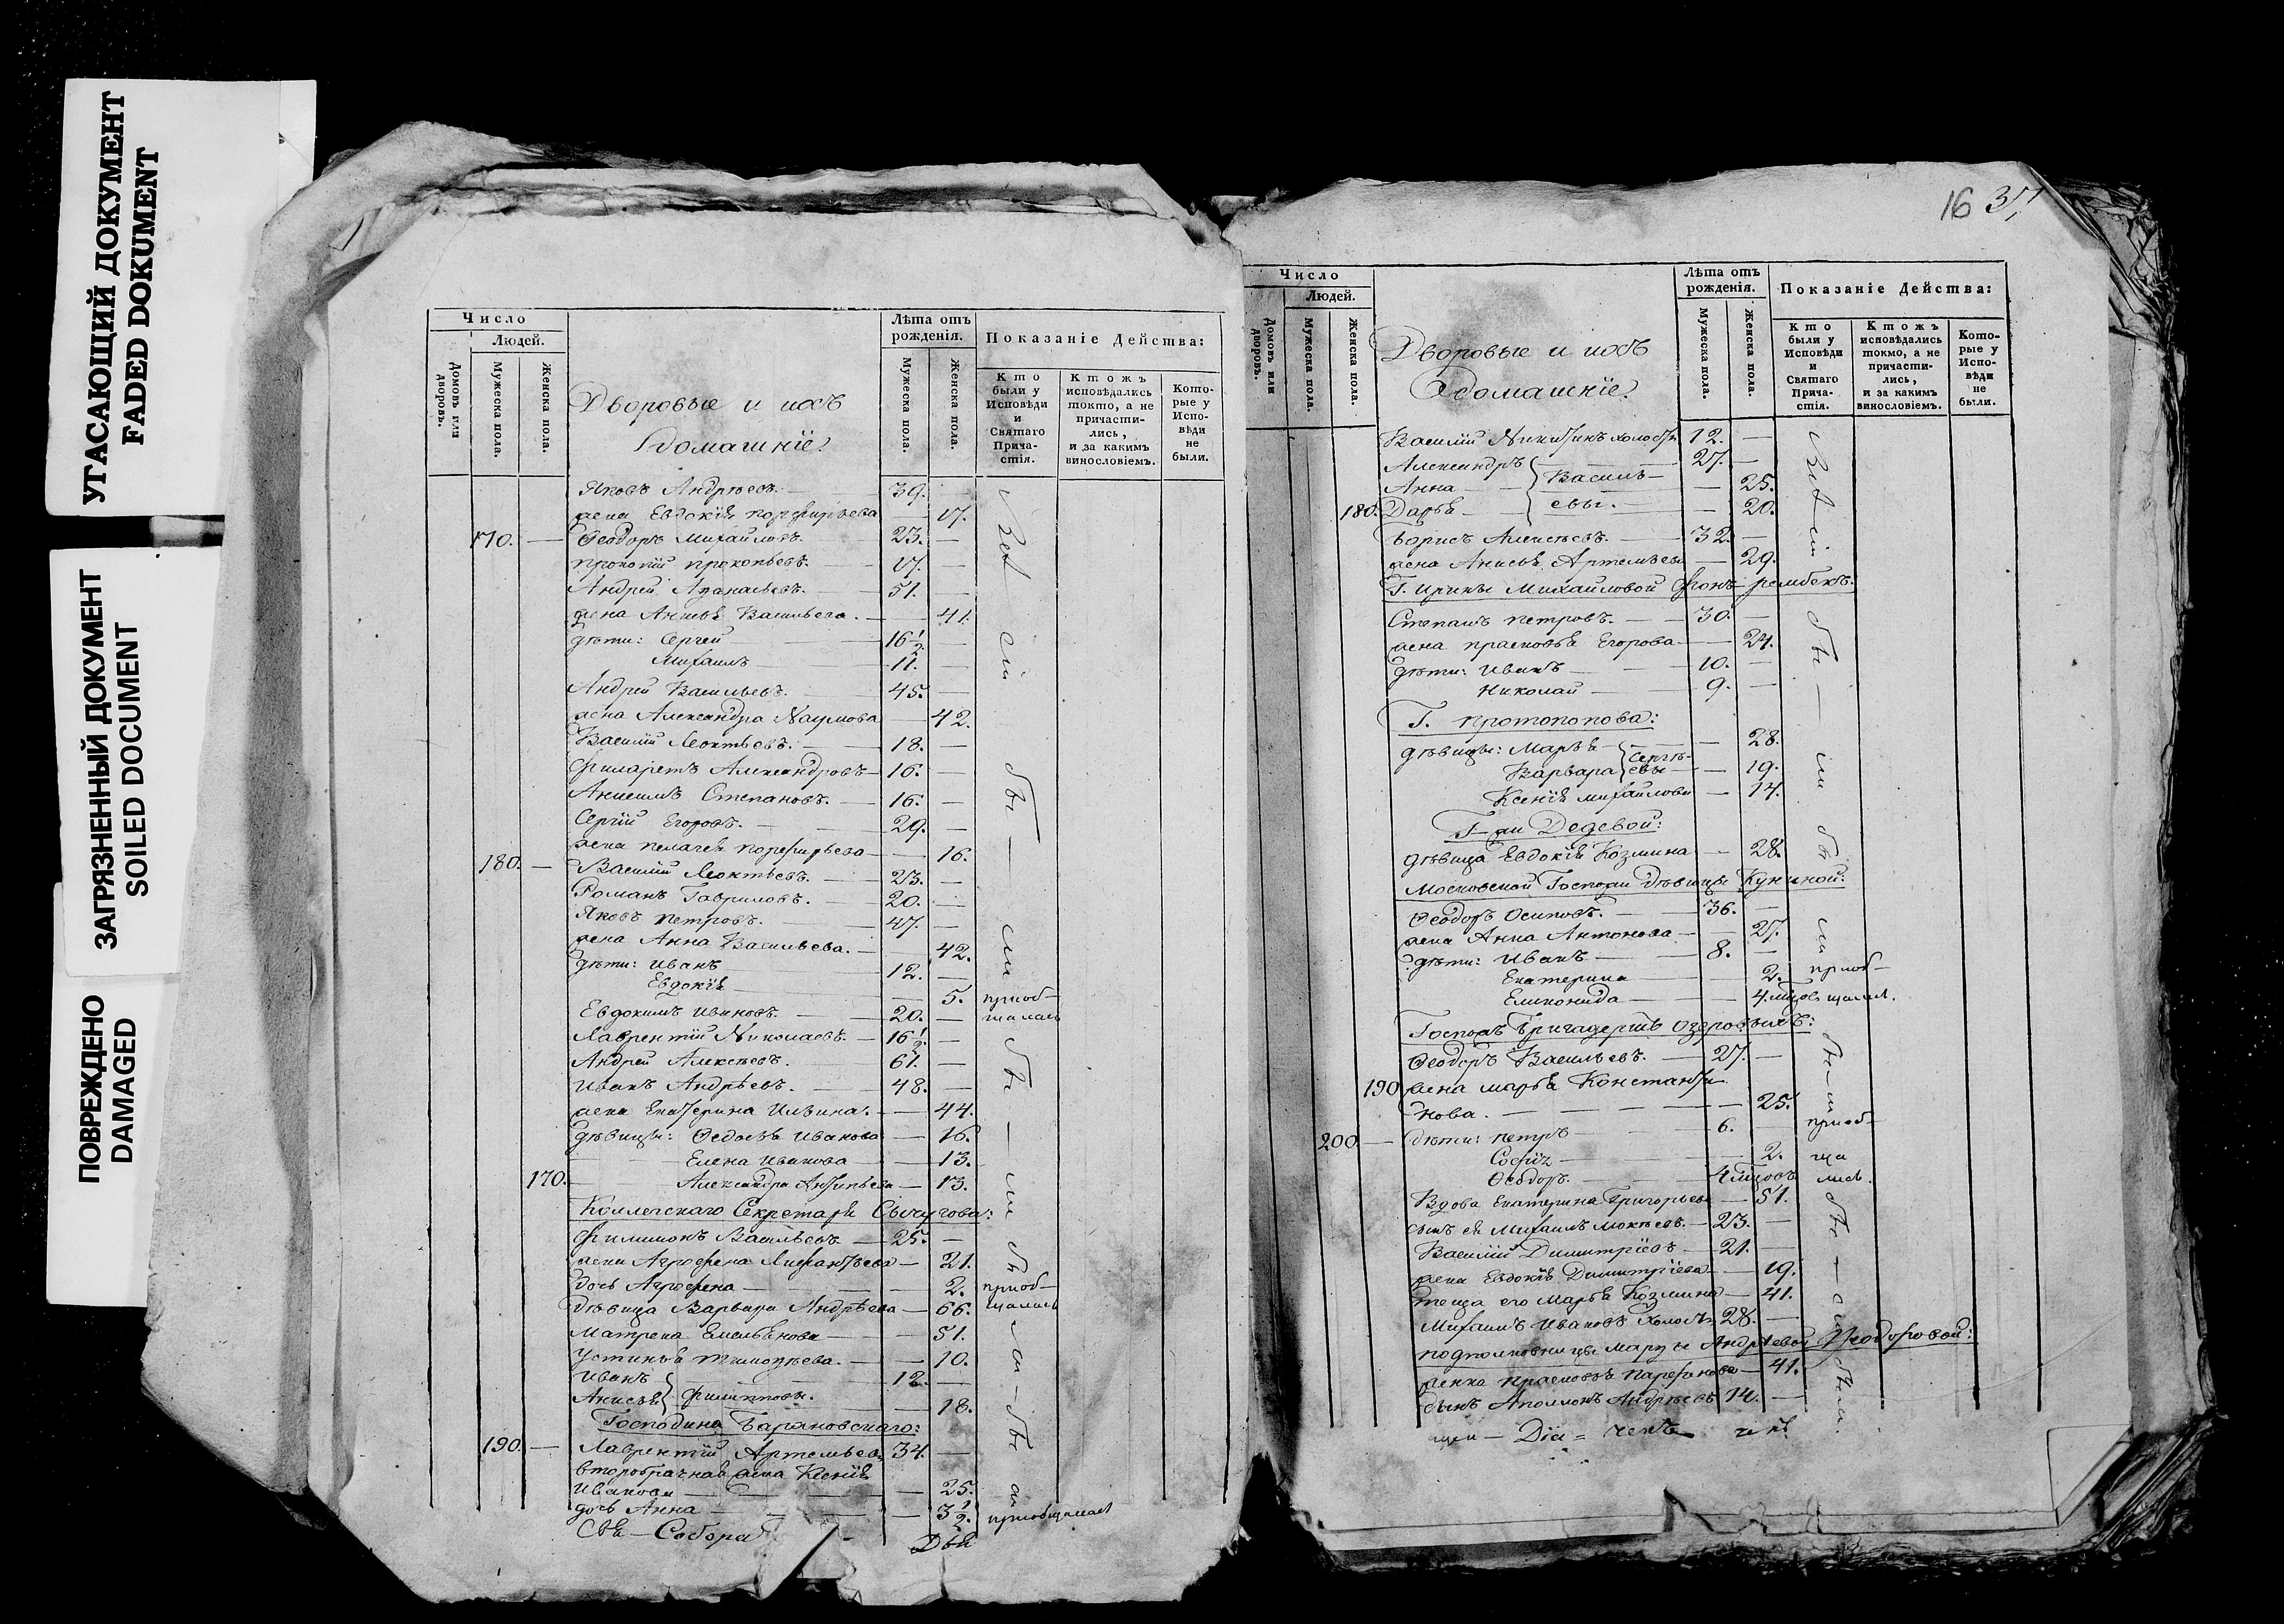 УГАСАЮЩИЙ ДОКУМЕНТ
FADED DOKUMENT
ЗАГРЯЗНЕННЫЙ ДОКУМЕНТ
SOILED DOCUMENT
ПОВРЕЖДЕНО
DAMAGED
Число
Людей.
Домовъ или дворовъ.
Мужеска пола.
Женска пола.
Дворовые и ихъ
домашнїе.
Лѣта отъ рожденія.
Мужеска пола.
Женска пола.
Показаніе Действа:
Кто были у Исповѣди и Святаго Прича-стія.
Ктожъ исповѣдались токмо, а не причасти-лись, и за какимъ винословіемъ.
Кото-рые у Испо-вѣди не были.
Яковъ Андрѣевъ. 39. —
жена Евдокія Порфирьева — 17.
170. — Ѳеодоръ Михайловъ. 23. —
Прокопій Прокопьевъ. 17. —
Андрей Афанасьевъ. 51. —
жена Анисья Васильева. — 41.
дѣти: Сергей 16 1/2 —
Михаилъ 11. —
Андрей Васильевъ. 45. —
жена Александра Наумова — 42.
Василій Леонтьевъ. 18. —
Филаретъ Александровъ 16. —
Анисимъ Степановъ. 16. —
Сергій Егоровъ. 29. —
жена Пелагея Порфирьева — 16.
180. — Василій Леонтьевъ. 23. —
Романъ Гавриловъ. 20. —
Яковъ Петровъ. 47. —
жена Анна Васильева. — 42.
дѣти: Иванъ 12. —
Евдокія — 5. приоб-
Евдокимъ Ивановъ. 20. — щалась
Лаврентій Николаевъ. 16 1/2 —
Андрей Алексѣевъ. 61. —
Иванъ Андрѣевъ. 48. —
жена Екатерина Ильина. — 44.
дѣвицы: Ѳедосья Иванова — 16.
Елена Иванова — 13.
170. Александра Антипьева — 13.
Коллежскаго Секретаря Сычугова:
Филимонъ Васильевъ 25. —
жена Агрофена Лифантьева — 21.
дочь Агрофена — 2. приоб-
дѣвица Варвара Андрѣева — 66. щалась
Матрена Емельянова — 51.
Устинья Тимофѣева. — 10.
Иванъ 12. —
Анисья } Филипповы. — 18.
Господина Барановскаго:
190. — Лаврентій Артемьевъ 34. —
второбрачная жена Ксенія
Иванова — 25.
дочь Анна — 3 1/2. приобщалась
Собора
16 37
Число
Людей.
Домовъ или дворовъ.
Мужеска пола.
Женска пола.
Дворовые и ихъ
домашнїе.
Лѣта отъ рожденія.
Мужеска пола.
Женска пола.
Показаніе Действа:
Кто были у Исповѣди и Святаго Прича-стія.
Ктожъ исповѣдались токмо, а не причасти-лись, и за какимъ винословіемъ.
Кото-рые у Испо-вѣди не были.
Василій Никитинъ холостъ 12. —
Александръ 27. —
Анна } Василь- — 25.
180. Дарья евы. — 20.
Борисъ Алексѣевъ. 32. —
жена Анисья Артемьева — 29.
Г. Ирины Михайловой Фонъ-Рембекъ.
Степанъ Петровъ. 30. —
жена Прасковья Егорова — 24.
дѣти: Иванъ 10. —
Николай 9. —
Г. Протопопова:
дѣвицы: Марья } Сергѣ- — 28.
Варвара } евы — 19.
Ксенія Михайлова — 14.
Г-жи Дедевой:
дѣвица Евдокія Козмина — 28.
Московской Госпожи дѣвицы Куниной:
Ѳеодоръ Осиповъ. 36. —
жена Анна Антонова — 27.
дѣти: Иванъ 8. —
Екатерина — 2. приоб-
Еликонида — 4. мцовъ щались.
Господъ Бригадершъ Озеровыхъ:
Ѳеодоръ Васильевъ. 27. —
190 жена Марья Константи-
нова. — 25.
200. — дѣти: Петръ 6. — приоб-
Софія — 2. ща
Ѳеодоръ. 4 мцовъ лись.
Вдова Екатерина Григорьева — 51.
сынъ ея Михаилъ Мокѣевъ. 23. —
Василій Димитріевъ 21. —
жена Евдокія Димитріева — 19.
теща его Марья Козмина — 41.
Михаилъ Ивановъ холостъ 28. —
Подполковницы Марьи Андрѣевой
женка Прасковья Парфенова — 41.
сынъ Аполлонъ Андрѣевъ 14. —